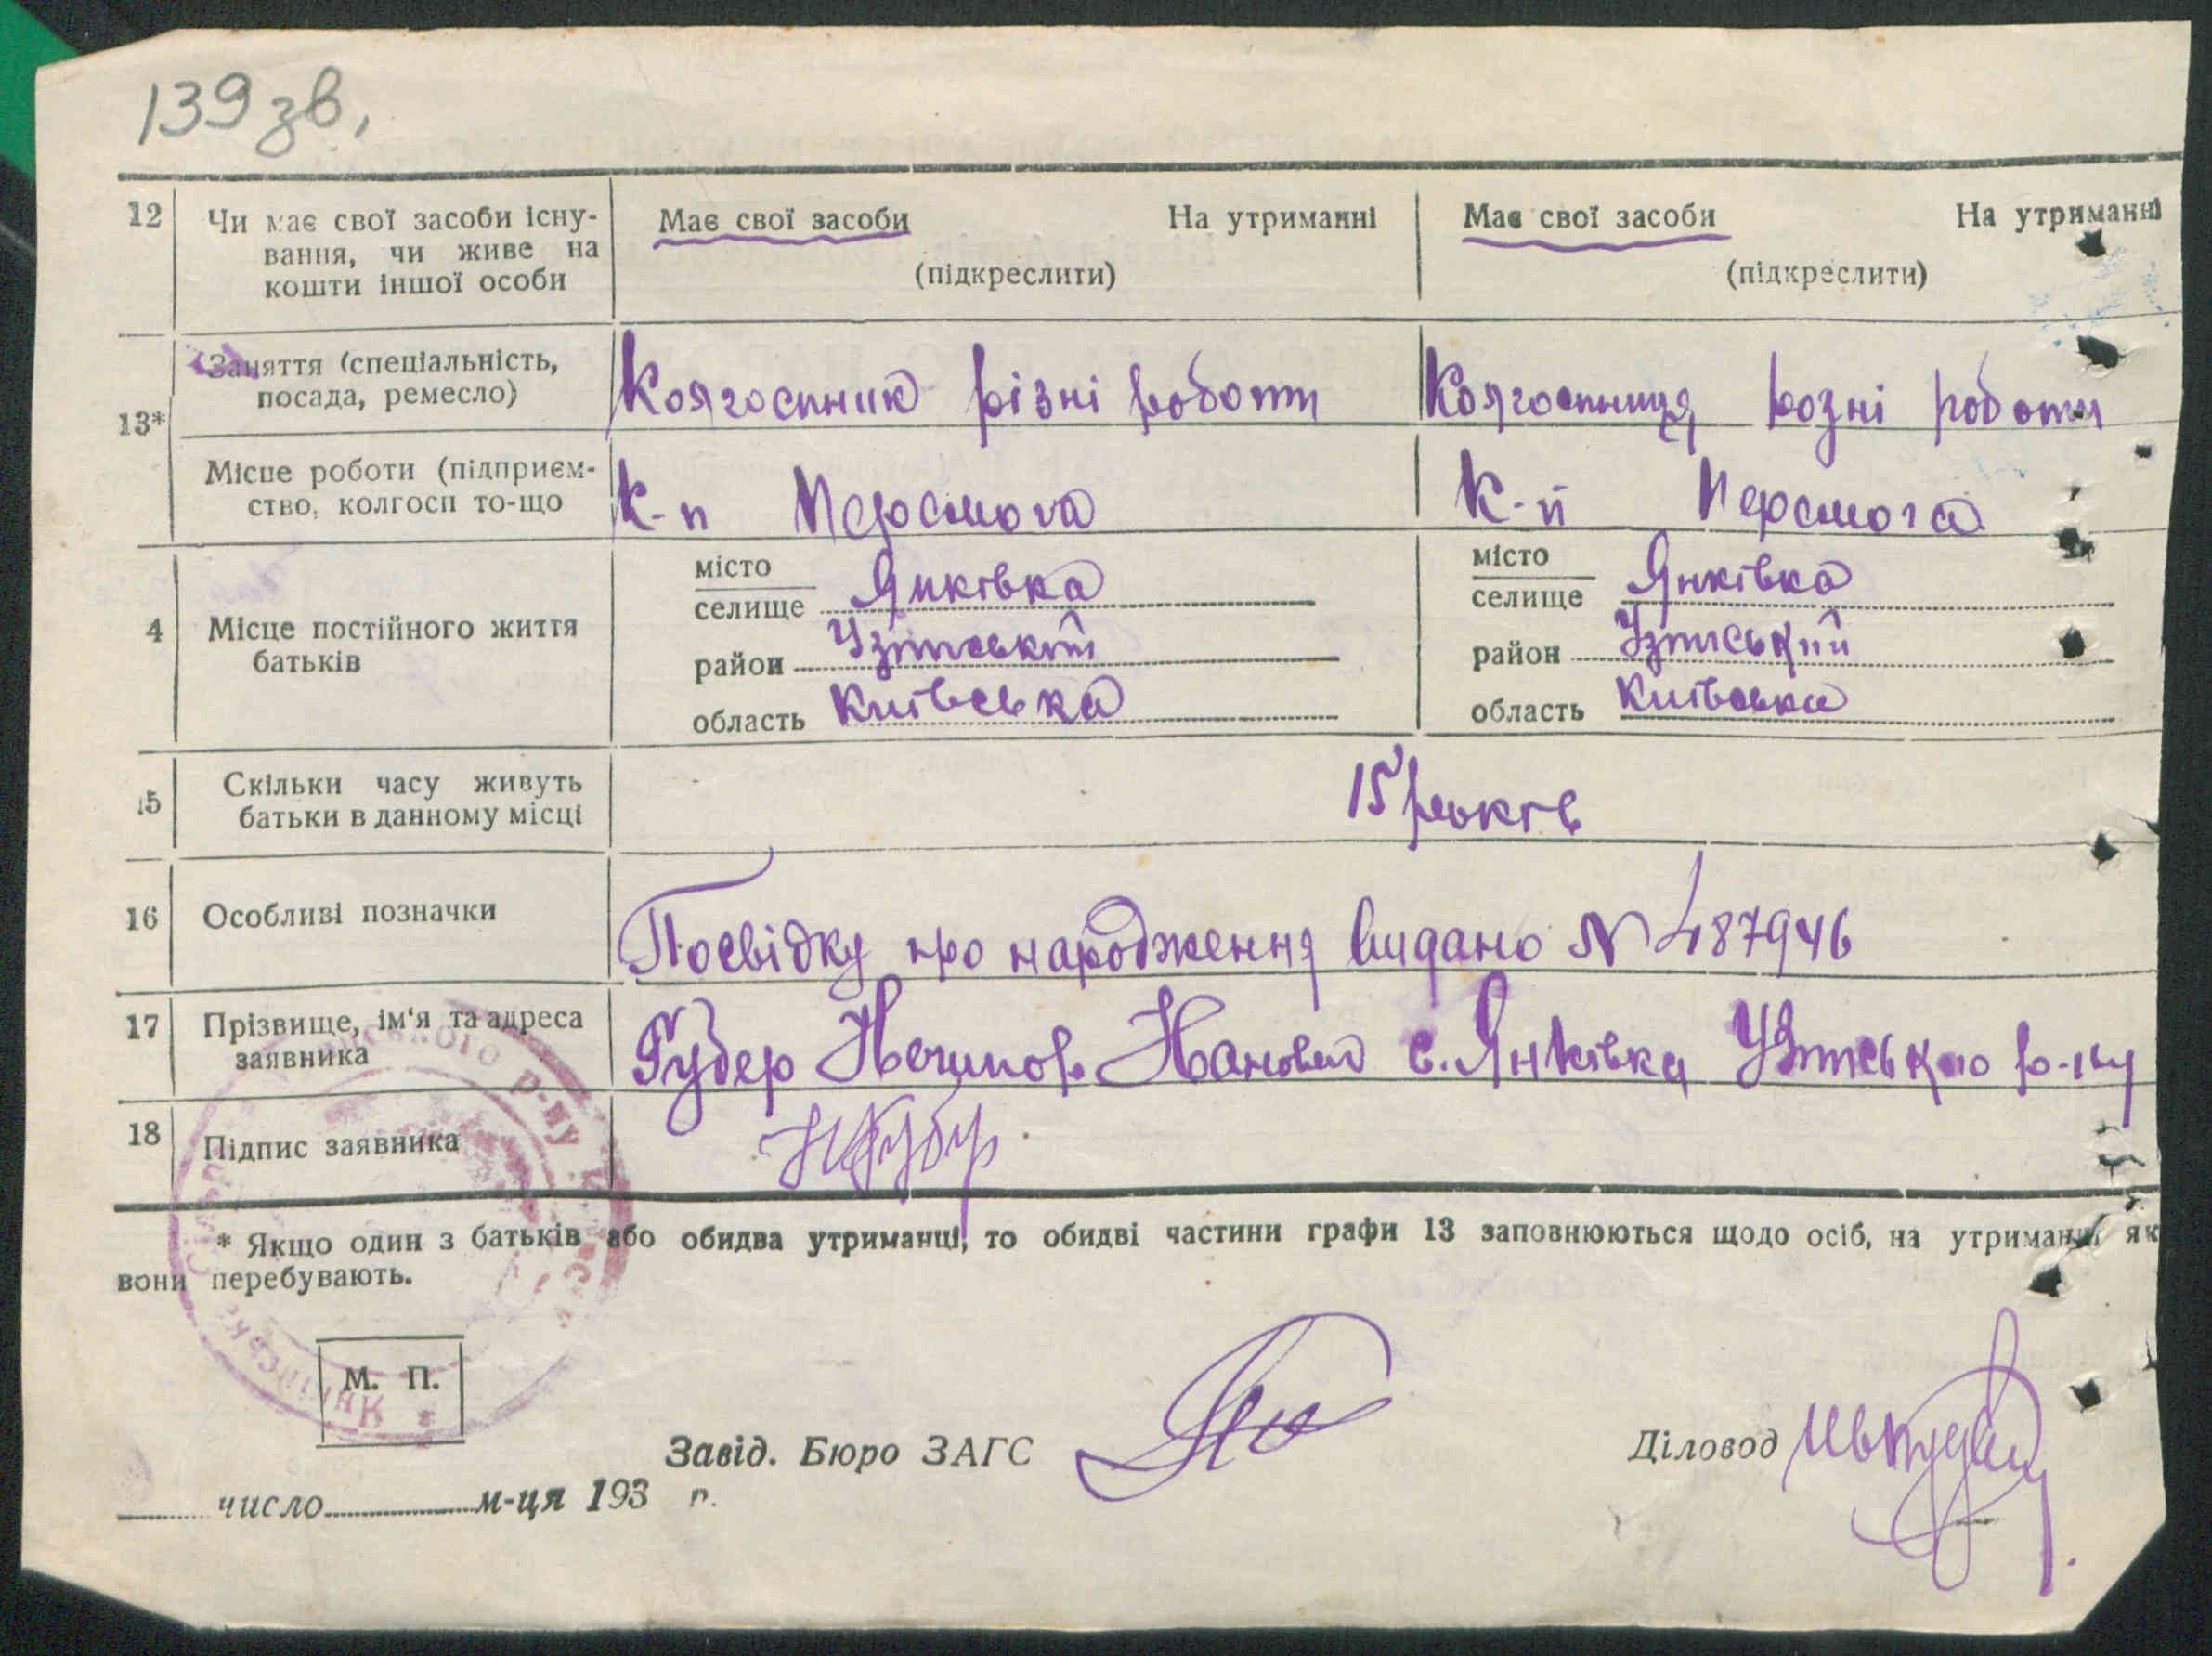 139 зв,
12 Чи має свої засоби існу- Має свої засоби На утриманні Має свої засоби На утриманні
вання, чи живе на
кошти іншої особи (підкреслити) (підкреслити)
Заняття (спеціальність,
посада, ремесло) Колгоспник різні роботи Колгоспниця розні роботи
13*
Місце роботи (підприєм-
ство, колгосп то-що К-п Перемога К-п Перемога
місто місто
селище Янківка селище Янківка
4 Місце постійного життя
батьків район Узинський район Узинський
область Київська область Київська
15 Скільки часу живуть
батьки в данному місці 15 років
16 Особливі позначки Посвідку про народження видано N 487946
17 Прізвище, ім'я та адреса
заявника Гудер с. Янківка Узинсько р-ну
18 Підпис заявника
* Якщо один з батьків або обидва утриманці, то обидві частини графи 13 заповнюються щодо осіб, на утриманні як
вони перебувають.
М. П.
Завід. Бюро ЗАГС Діловод
число м-ця 193 р.